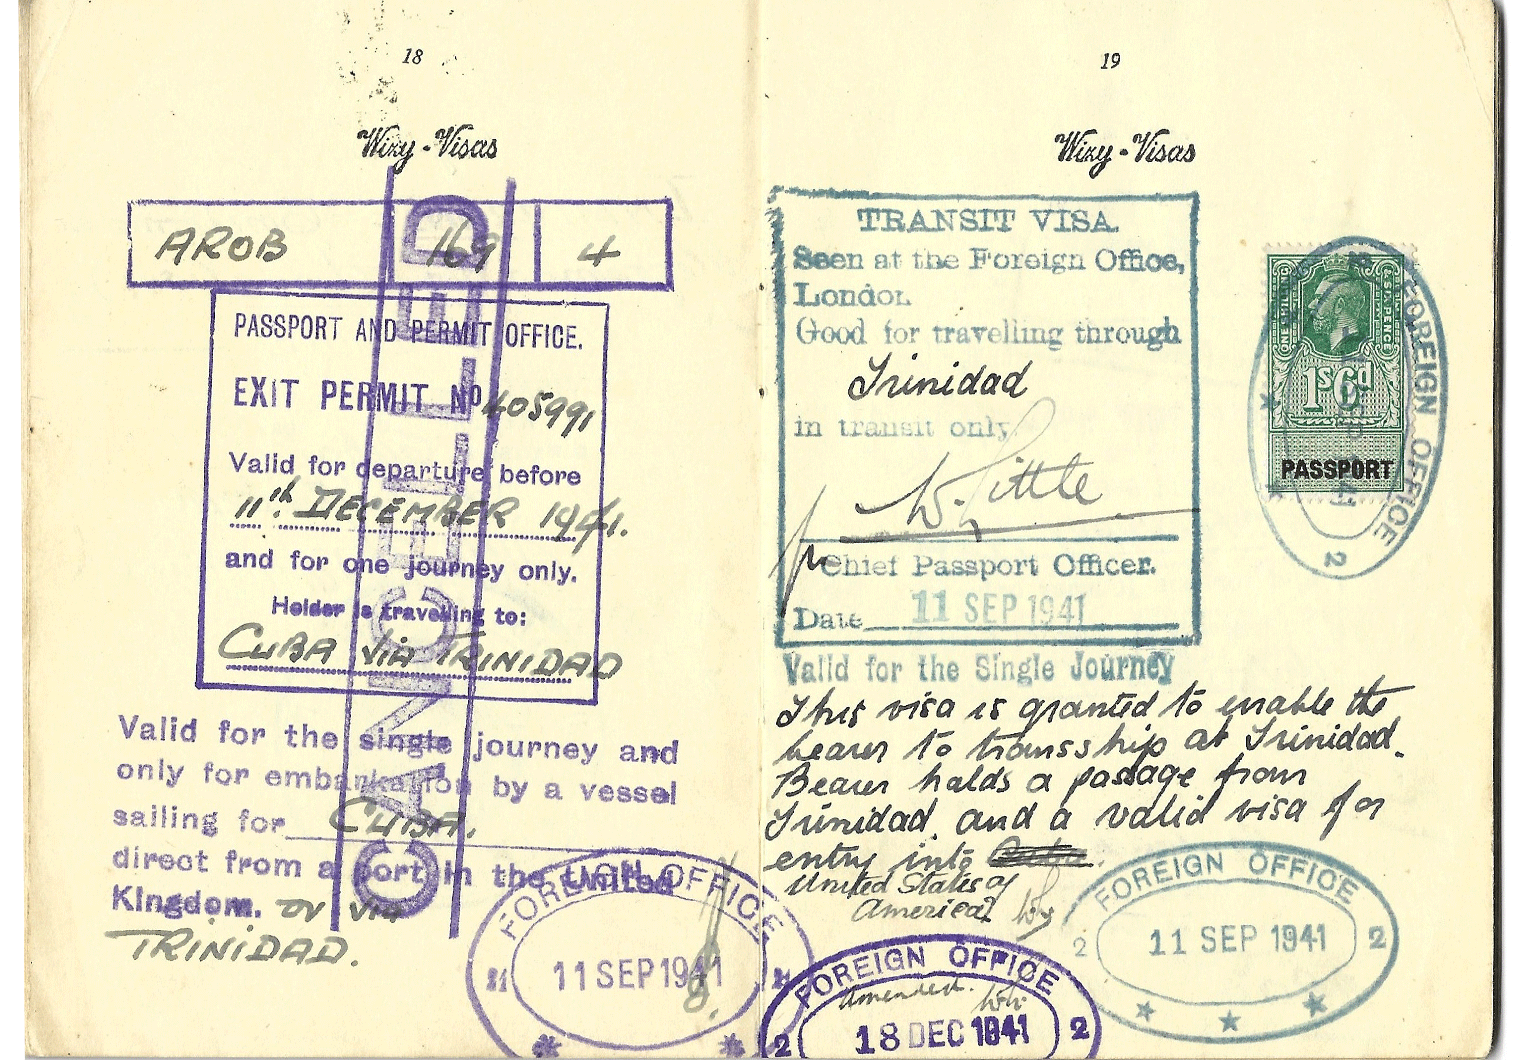 18
Wizy-Visas
AROB 169 4
PASSPORT AND PERMIT OFFICE.
EXIT PERMIT No 405991
Valid for departure before
11th DECEMBER 1941.
and for one journey only.
Holder is travelling to:
CUBA VIA TRINIDAD
Valid for the single journey and
only for embarkation by a vessel
sailing for CUBA.
direct from a port in the United
Kingdom. or via
TRINIDAD.
CANCELLED
FOREIGN OFFICE
11 SEP 1941
19
Wizy-Visas
TRANSIT VISA.
Seen at the Foreign Office,
London.
Good for travelling through
Trinidad
in transit only
W. Little
Chief Passport Officer.
Date 11 SEP 1941
Valid for the Single Journey
This visa is granted to enable the
bearer to transship at Trinidad.
Bearer holds a passage from
Trinidad. and a valid visa for
entry into Cuba.
United States of
America
ONE SHILLING & SIX PENCE
1s 6d
PASSPORT
FOREIGN OFFICE
2
FOREIGN OFFICE
2 11 SEP 1941 2
FOREIGN OFFICE
Amended.
2 18 DEC 1941 2